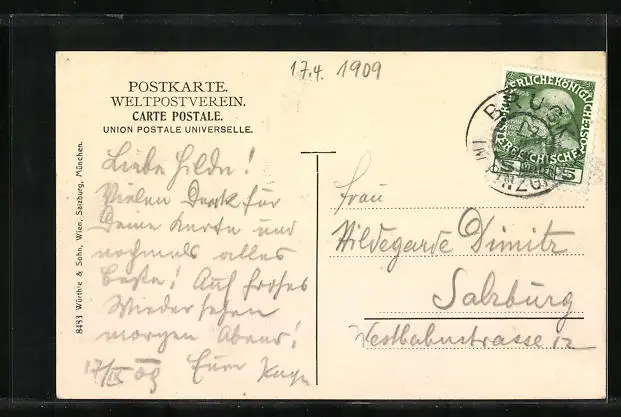 17.4. 1909
POSTKARTE.
WELTPOSTVEREIN.
CARTE POSTALE.
UNION POSTALE UNIVERSELLE.
8483 Würthle & Sohn, Wien, Salzburg, München.
Liebe Hilde!
Vielen Dank für
Deine Karte und
nochmals alles
Beste! Auf frohes
Wiedersehen
morgen Abend!
17/IX 09 Euer
Frau
Hildegarde Dimitz
Salzburg
Westbahnstrasse 12
BRUCK
IM PINZGAU
5